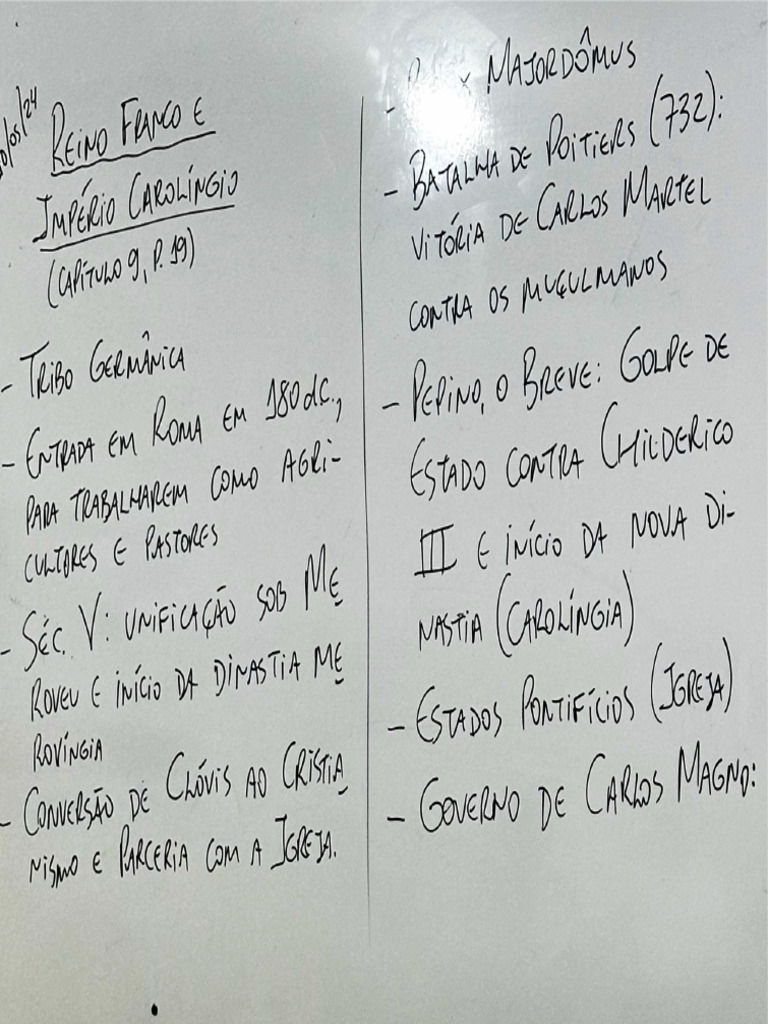 /05/24
Reino Franco e
Império Carolíngio
(Capítulo 9, p. 19)
- Tribo Germânica
- Entrada em Roma em 180 d.C.,
para trabalharem como agri-
cultores e pastores
- Séc. V: unificação sob Me
roveu e início da dinastia me
rovíngia
- Conversão de Clóvis ao Cristia
nismo e parceria com a Igreja.
- Majordômus
- Batalha de Poitiers (732):
vitória de Carlos Martel
contra os muçulmanos
- Pepino, o Breve: Golpe de
Estado contra Childerico
III e início da nova di-
nastia (Carolíngia)
- Estados Pontifícios (Igreja)
- Governo de Carlos Magno: